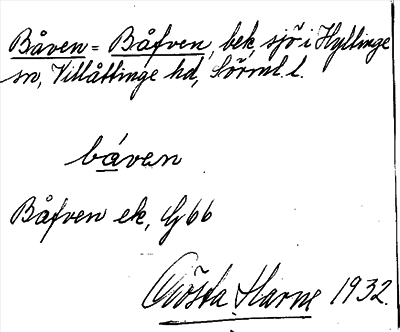 Båven = Båfven, bek. sjö i Hyllinge
sn, Villåttinge hd, Sörml. l.
båven
Båfven ek, G66
Gösta Harne 1932.